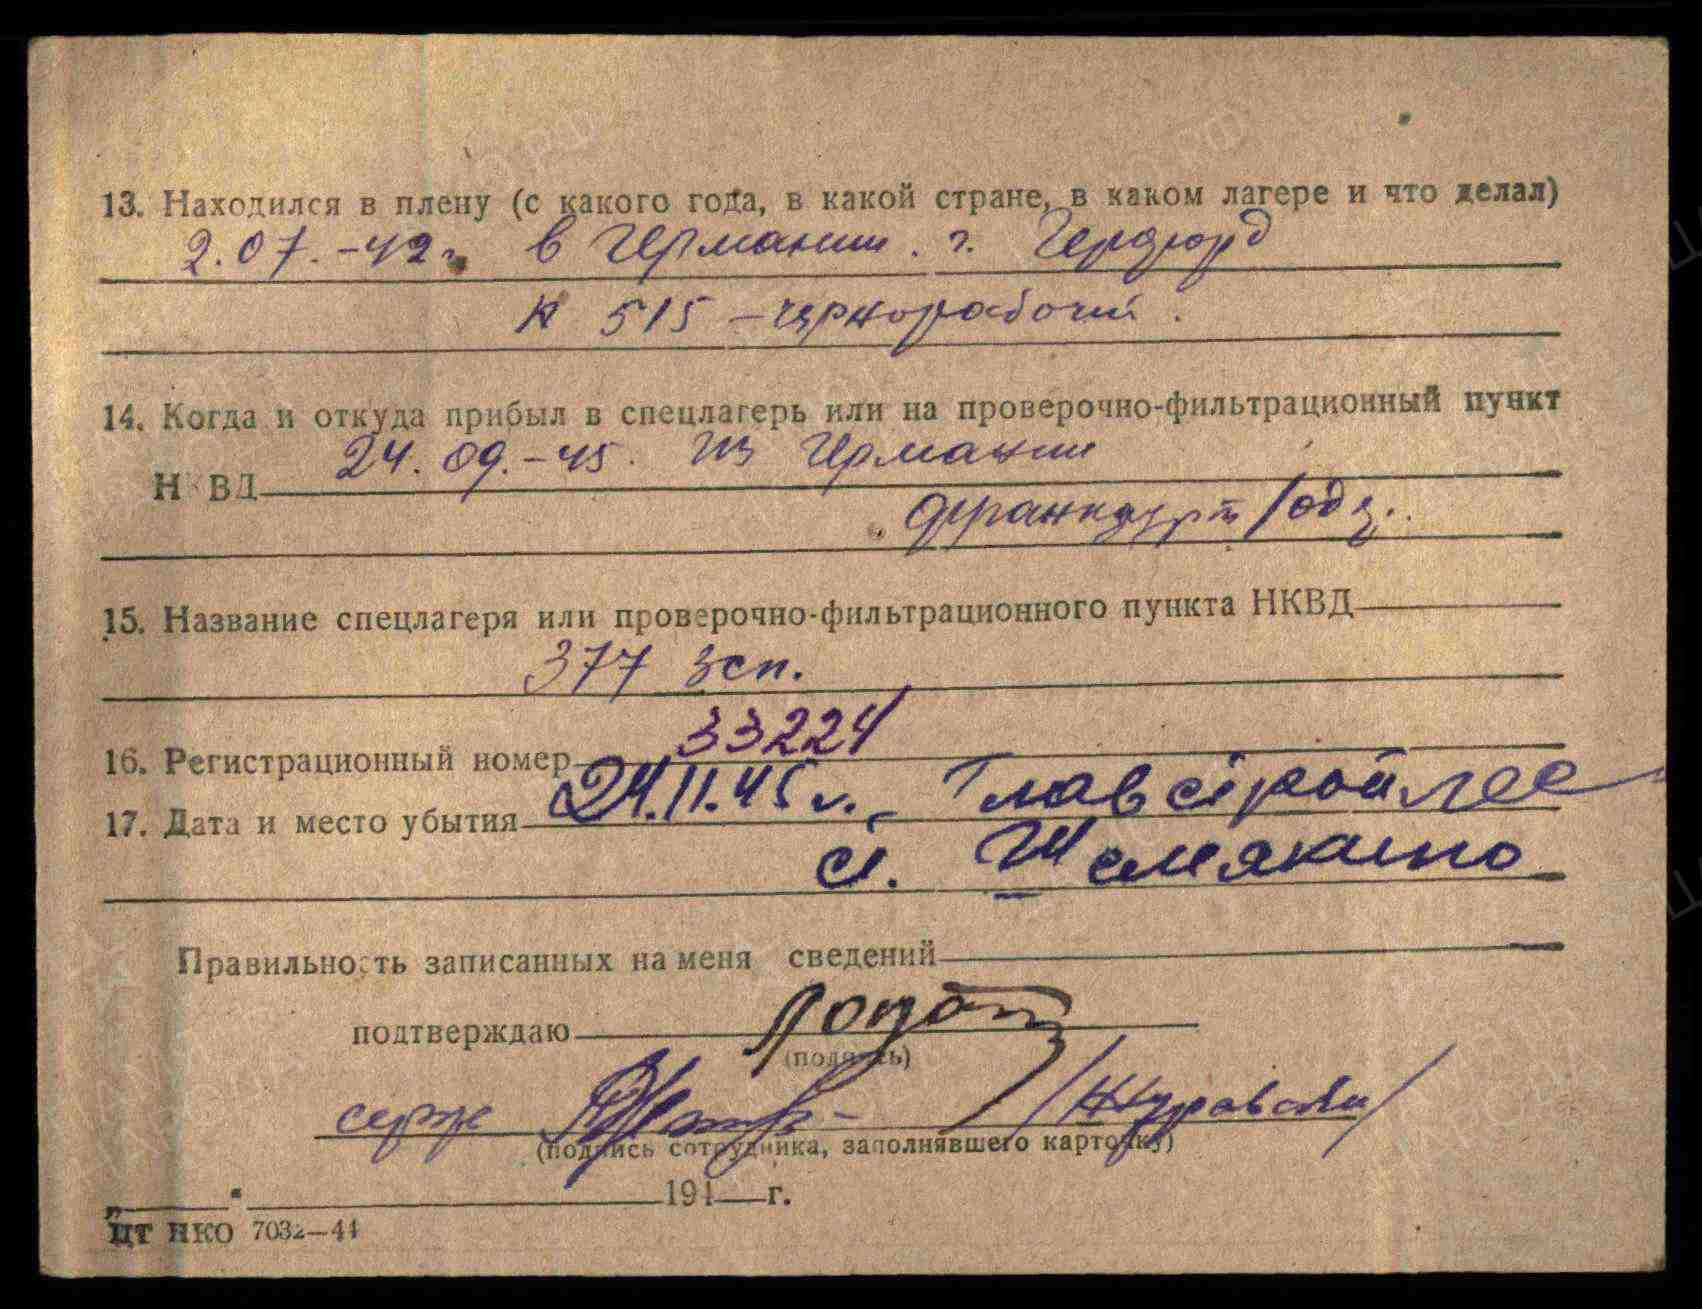 13. Находился в плену (с какого года, в какой стране, в каком лагере и что делал)
2.07.-42г. в Германии. г. Герфорд
К 515 - чернорабочий.
14. Когда и откуда прибыл в спецлагерь или на проверочно-фильтрационный пункт
НКВД 24.09.-45. из Германии
Франкфурт/Од.
15. Название спецлагеря или проверочно-фильтрационного пункта НКВД
377 зсп.
16. Регистрационный номер 33224
17. Дата и место убытия 24.11.45 г. Главстройлес
ст. Шемякино
Правильность записанных на меня сведений
подтверждаю
(подпись)
серж /Журавский/
(подпись сотрудника, заполнявшего карточку)
„ 194 г.
ЦТ НКО 7032—44